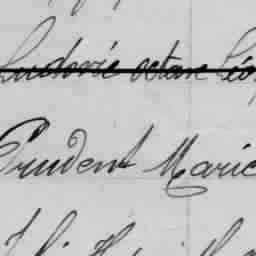 Ludovic octave Léo
Prudent Marie